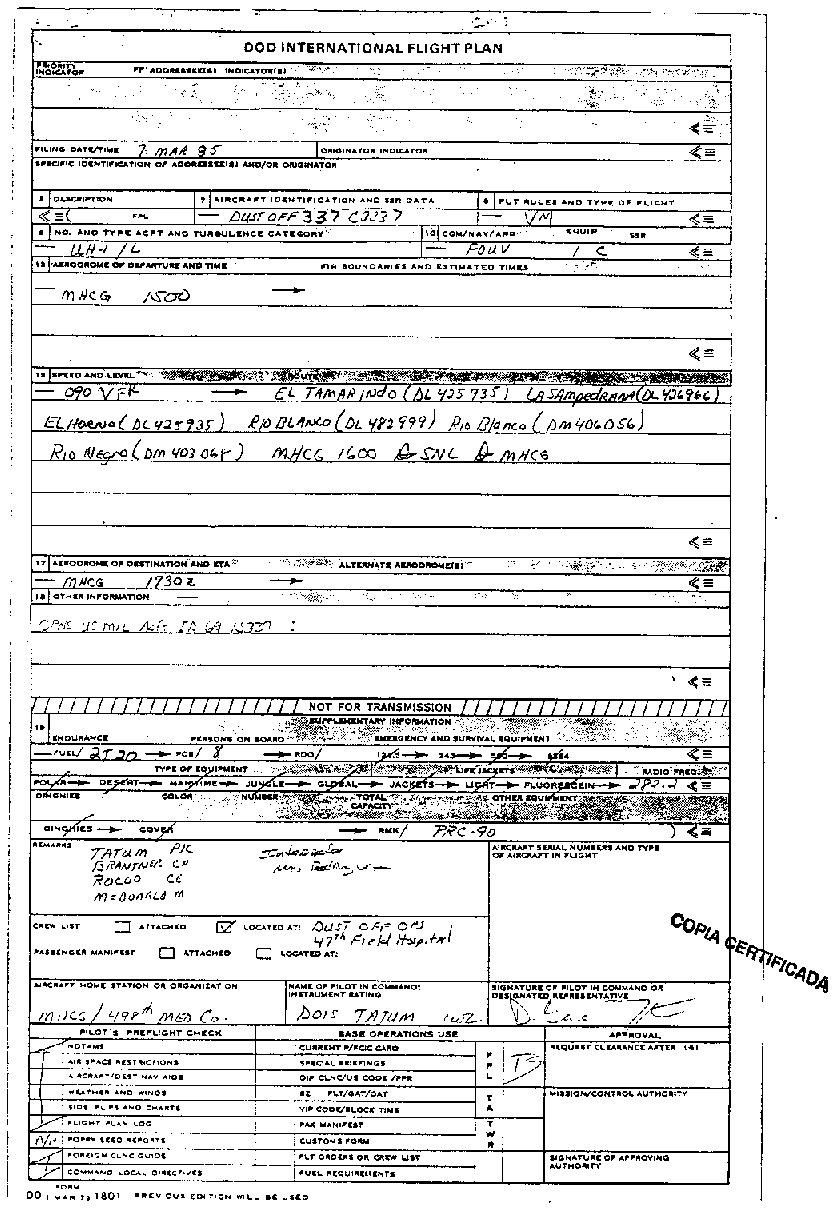 DOD INTERNATIONAL FLIGHT PLAN
PRIORITY INDICATOR FF ADDRESSEE(S) INDICATOR(S)
<≡
FILING DATE/TIME 7 MAR 85 ORIGINATOR INDICATOR <≡
SPECIFIC IDENTIFICATION OF ADDRESSEE(S) AND/OR ORIGINATOR
DESCRIPTION 7 AIRCRAFT IDENTIFICATION AND SSR DATA 8 FLT RULES AND TYPE OF FLIGHT
<≡( FPL — DUSTOFF 337 C3337 — VN
9 NO. AND TYPE ACFT AND TURBULENCE CATEGORY 10 COM/NAV/APP EQUIP SSR
— UH-1/L — FOUV / C <≡
13 AERODROME OF DEPARTURE AND TIME FIR BOUNDARIES AND ESTIMATED TIMES
— MHCG 1500 →
<≡
15 SPEED AND LEVEL ROUTE
— 090 VFR → EL TAMARINDO (DL 425735) LA SAMPEDRANA (DL 426966)
EL HORNO (DL 425935) RIO BLANCO (DL 482999) Rio Blanco (DM 406056)
Rio Negro (DM 403068) MHCG 1600 SNL MHCG
<≡
17 AERODROME OF DESTINATION AND ETA ALTERNATE AERODROME(S)
— MHCG 1730Z → <≡
18 OTHER INFORMATION
OPNS US MIL ACFT
<≡
NOT FOR TRANSMISSION
19 SUPPLEMENTARY INFORMATION
ENDURANCE PERSONS ON BOARD EMERGENCY AND SURVIVAL EQUIPMENT
— FUEL/ 2+20 → POB/ 8 → RDO/ 121.5 → 243 → 500 → 8364 <≡
TYPE OF EQUIPMENT LIFE JACKETS RADIO FREQ.
POLAR → DESERT → MARITIME → JUNGLE → GLOBAL → JACKETS → LIGHT → FLUORESCEIN → 282.2 <≡
DINGHIES COLOR NUMBER TOTAL CAPACITY OTHER EQUIPMENT
DINGHIES → COVER → RMK/ PRC-90 ) <≡
REMARKS AIRCRAFT SERIAL NUMBERS AND TYPE OF AIRCRAFT IN FLIGHT
TATUM PIC
BRANTNER CP
ROCCO CE
McDONALD M
CREW LIST ATTACHED LOCATED AT: DUST OFF OPS
47th Field Hospital
PASSENGER MANIFEST ATTACHED LOCATED AT:
COPIA CERTIFICADA
AIRCRAFT HOME STATION OR ORGANIZATION NAME OF PILOT IN COMMAND: INSTRUMENT RATING SIGNATURE OF PILOT IN COMMAND OR DESIGNATED REPRESENTATIVE
MHCG / 498th MED Co. DOIS TATUM
PILOT'S PREFLIGHT CHECK BASE OPERATIONS USE APPROVAL
NOTAMS CURRENT P/RCIC CARD REQUEST CLEARANCE AFTER
AIR SPACE RESTRICTIONS SPECIAL BRIEFINGS
AIRCRAFT/DEST NAV AIDS DIP CLNC/US CODE/PPR
WEATHER AND WINDS EZ FLT/GAT/OAT MISSION/CONTROL AUTHORITY
SIDS, FLIPS AND CHARTS VIP CODE/BLOCK TIME
FLIGHT PLAN LOG PAX MANIFEST
POPPY SEED REPORTS CUSTOMS FORM
FOREIGN CLNC GUIDE FLT ORDERS OR CREW LIST SIGNATURE OF APPROVING AUTHORITY
COMMAND LOCAL DIRECTIVES FUEL REQUIREMENTS
DD FORM 1801 PREVIOUS EDITION WILL BE USED